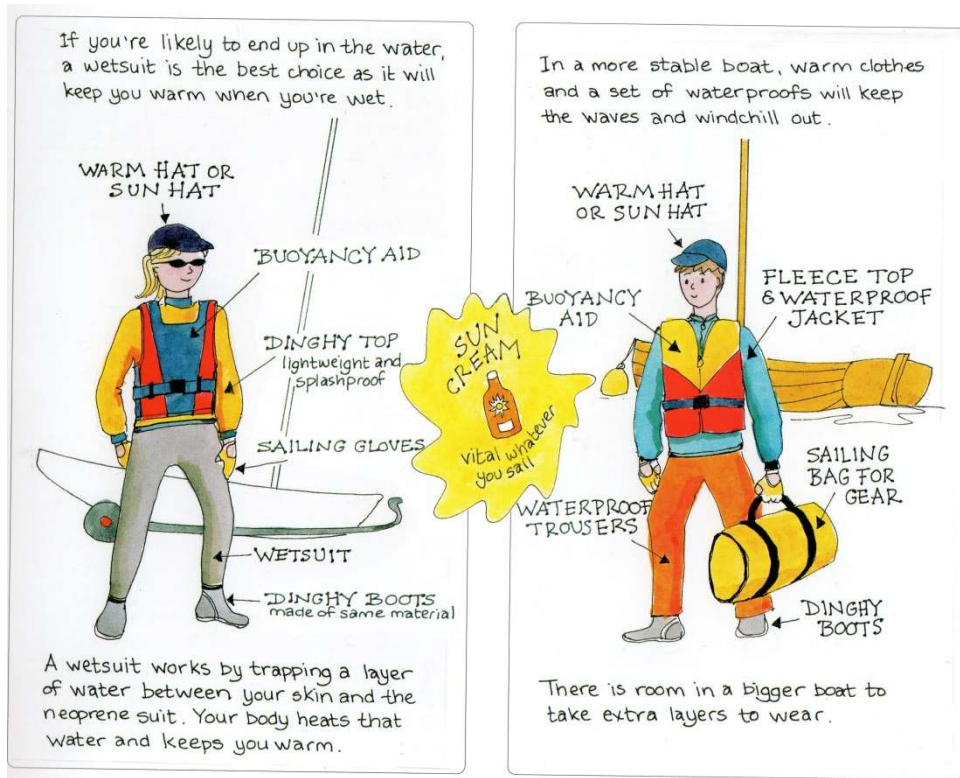 If you're likely to end up in the water,
a wetsuit is the best choice as it will
keep you warm when you're wet.
WARM HAT OR
SUN HAT
BUOYANCY AID
DINGHY TOP
lightweight and
splashproof
SAILING GLOVES
WETSUIT
DINGHY BOOTS
made of same material
A wetsuit works by trapping a layer
of water between your skin and the
neoprene suit. Your body heats that
water and keeps you warm.
SUN
CREAM
vital whatever
you sail
In a more stable boat, warm clothes
and a set of waterproofs will keep
the waves and windchill out.
WARM HAT
OR SUN HAT
BUOYANCY
AID
FLEECE TOP
& WATERPROOF
JACKET
SAILING
BAG FOR
GEAR
WATERPROOF
TROUSERS
DINGHY
BOOTS
There is room in a bigger boat to
take extra layers to wear.